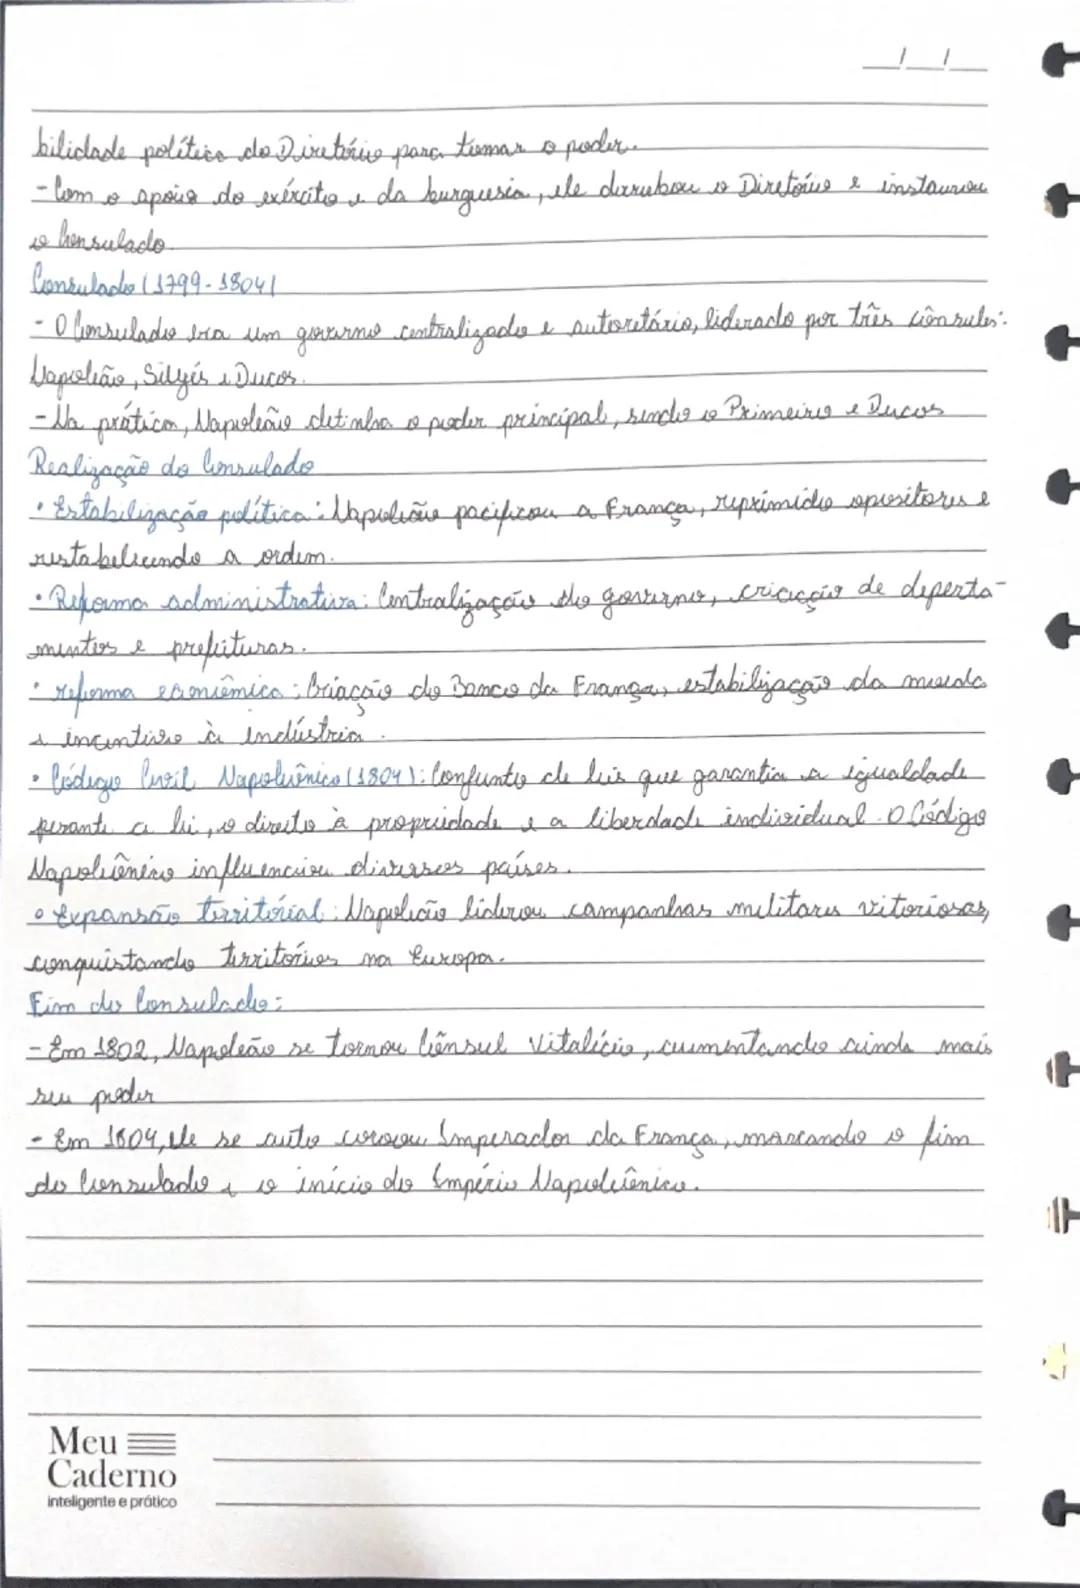 __/__/__
bilidade política do Diretório para tomar o poder.
- Com o apoio do exército e da burguesia, ele derrubou o Diretório e instaurou
o Consulado.
Consulado (1799-1804)
- O Consulado era um governo centralizado e autoritário, liderado por três cônsules:
Napoleão, Siéyes e Ducos.
- Na prática, Napoleão detinha o poder principal, sendo o Primeiro e Ducos
Realização do Consulado
• Estabilização política: Napoleão pacificou a França, reprimido opositores e
restabelecendo a ordem.
• Reforma administrativa: Centralização do governo, criação de departa-
mentos e prefeituras.
• reforma econômica: Criação do Banco da França, estabilização da moeda
e incentivo à indústria.
• Código Civil Napoleônico (1804): Conjunto de leis que garantia a igualdade
perante a lei, o direito à propriedade e a liberdade individual. O Código
Napoleônico influenciou diversos países.
• Expansão territorial: Napoleão liderou campanhas militares vitoriosas,
conquistando territórios na Europa.
Fim do Consulado:
- Em 1802, Napoleão se tornou Cônsul Vitalício, aumentando ainda mais
seu poder
- Em 1804, ele se auto coroou Imperador da França, marcando o fim
do Consulado e o início do Império Napoleônico.
Meu
Caderno
inteligente e prático